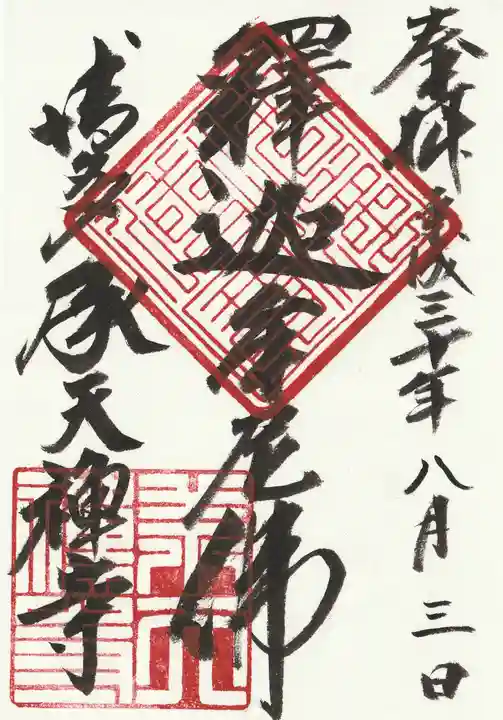 奉拝 平成三十年八月三日
釋迦牟尼佛
博多承天禅寺